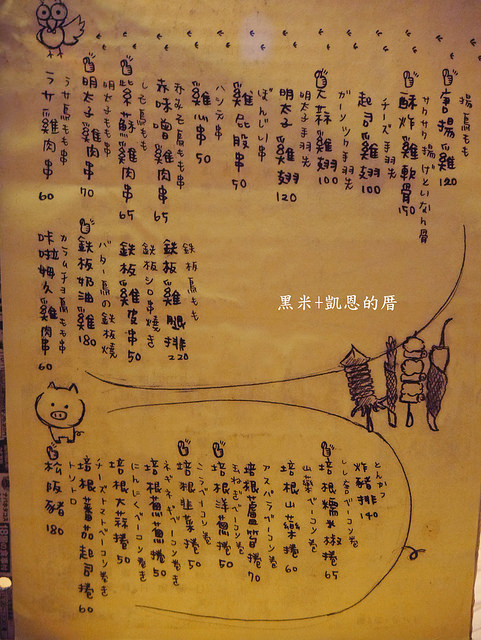 揚鳥もも
唐揚雞 120
サクサク揚げとりなん骨
酥炸雞軟骨 150
チーズ手羽先
起司雞翅 100
ガーリック手羽先
大蒜雞翅 100
明太子手羽先
明太子雞翅 120
ぼんじり串
雞屁股串 50
ハツ元串
雞心串 50
赤みそ鳥もも串
赤味噌雞肉串 65
しそ鳥もも串
紫蘇雞肉串 65
明太子もも串
明太子雞肉串 70
ラサ鳥もも串
ラサ雞肉串 60
鉄板鳥もも
鉄板雞腿排 220
鉄板シロ串焼き
鉄板雞皮串 50
バター鳥の鉄板焼
鉄板奶油雞 180
カラムーチョ鳥もも串
咔啦姆久雞肉串 60
黑米+凱恩的厝
とんかつ
炸豬排 140
しし唐ベーコン巻
培根糯米椒捲 65
山薬ベーコン巻
培根山藥捲 60
アスパラベーコン巻
培根蘆筍捲 70
玉ねぎベーコン巻
培根洋蔥捲 50
ニラベーコン巻
培根韭菜捲 50
ネギネギベーコン巻き
培根蔥蔥捲 50
にんにくベーコン巻き
培根大蒜捲 50
チーズトマトベーコン巻き
培根蕃茄起司捲 60
トントロ
松阪豬 180